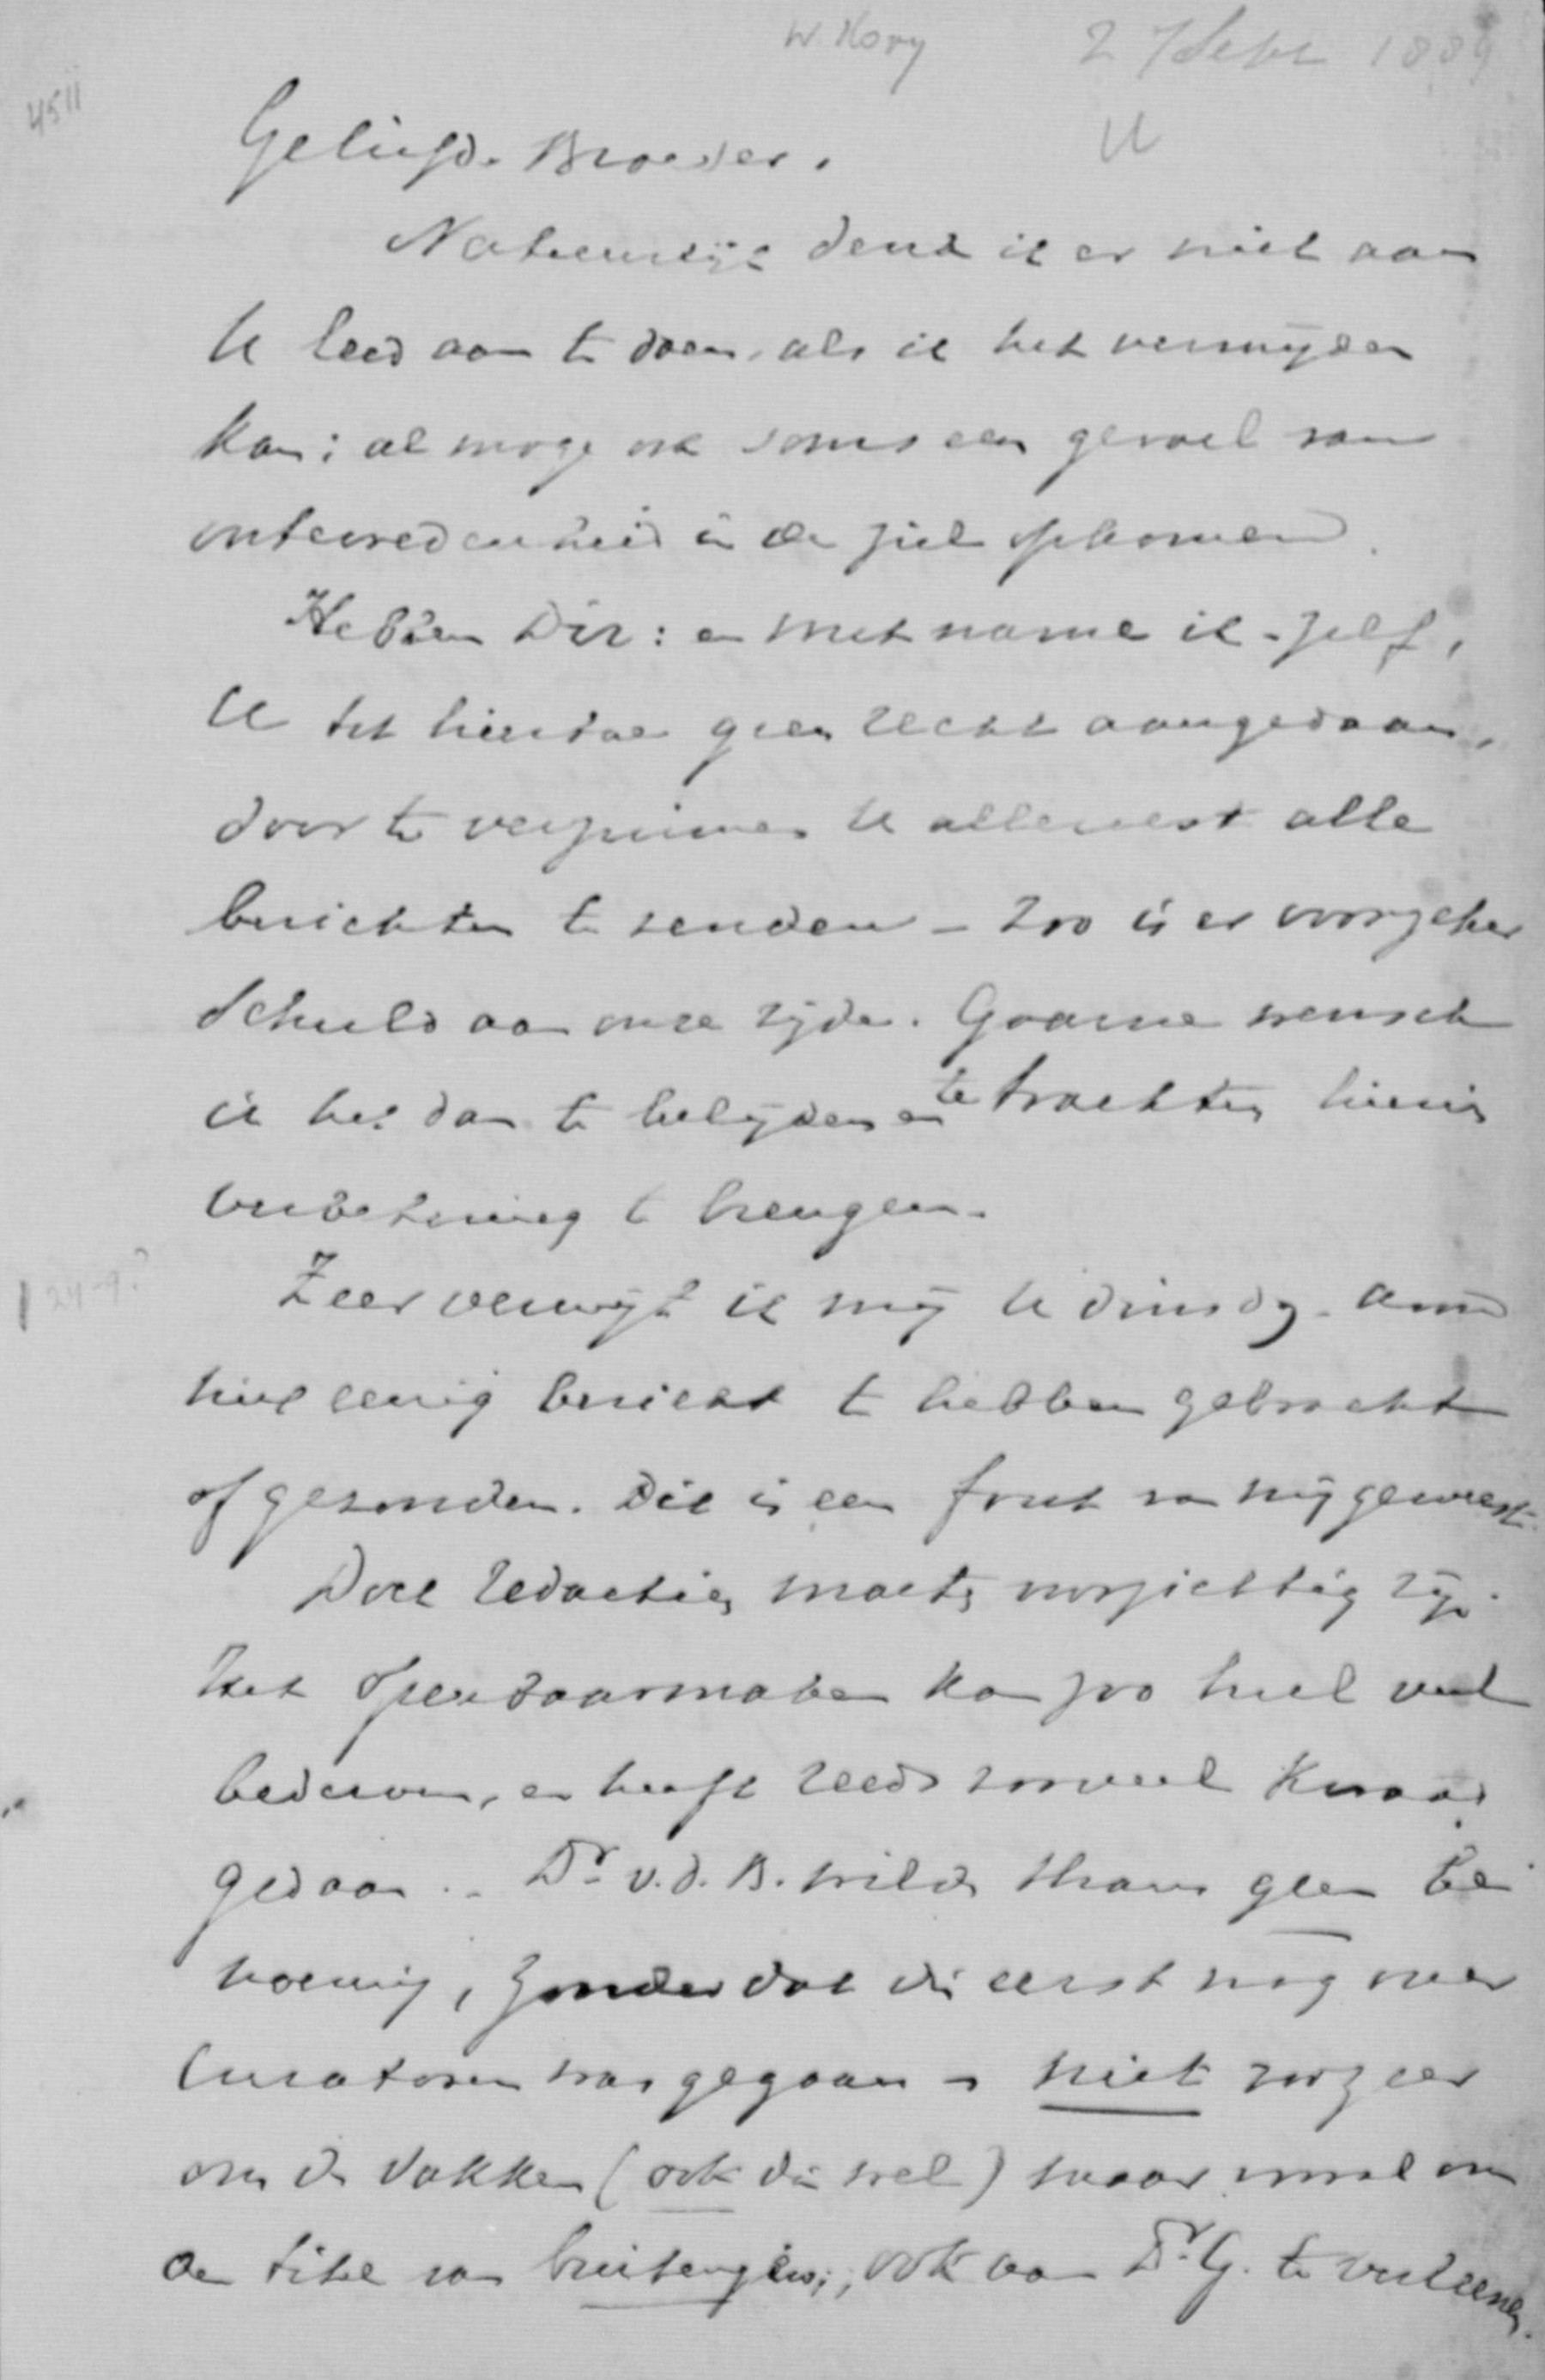 W. Hovy 27 Sept 1889
4511
U
Geliefde Broeder.
Natuurlijk denk ik er niet aan
U leed aan te doen, als ik het vermijden
kan; al moge ook soms een gevoel van
ontevredenheid in de ziel opkomen.
Hebben Dir: en met name ik-zelf,
U tot hiertoe geen recht aangedaan,
door te verzuimen U allereerst alle
berichten te zenden – zoo is er voorzeker
schuld aan onze zijde. Gaarne wensch
ik het dan te belijden en te trachten hierin
verbetering te brengen.
24-9?
Zeer verwijt ik mij U dinsdg. avond
niet eenig bericht te hebben gebracht
of gezonden. Dit is een fout van mij geweest.
Doch redactiën moeten voorzichtig zijn.
Het openbaarmaken kan zoo heel veel
bederven, en heeft reeds zooveel kwaad
gedaan. – Dr. v.d. B. wilde thans geen be
noeming, zonder dat die eerst nog over
Curatoren was gegaan – niet zoozeer
om de vakken (ook die wel) maar vooral om
den titel van buitengew:, ook aan Dr. G. te verleenen.